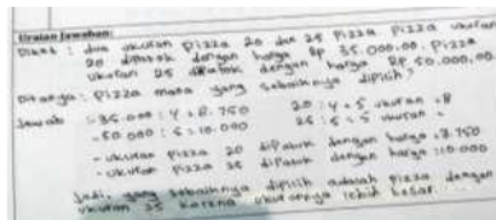 Uraian Jawaban:
Diket : dua ukuran pizza 20 dan 25 pizza pizza ukuran
20 dipatok dengan harga Rp 35.000,00. pizza
ukuran 25 dipatok dengan harga Rp 50.000,00.
Ditanya: pizza mana yang sebaiknya dipilih?
Jawab - 35.000 : 4 = 8.750 20 : 4 = 5 ukuran
- 50.000 : 5 = 10.000 25 : 5 = 5 ukuran
- ukuran pizza 20 dipatok dengan harga 8.750
- ukuran pizza 25 dipatok dengan harga 10.000
Jadi, yang sebaiknya dipilih adalah pizza dengan
ukuran 25 karena ukurannya lebih besar.